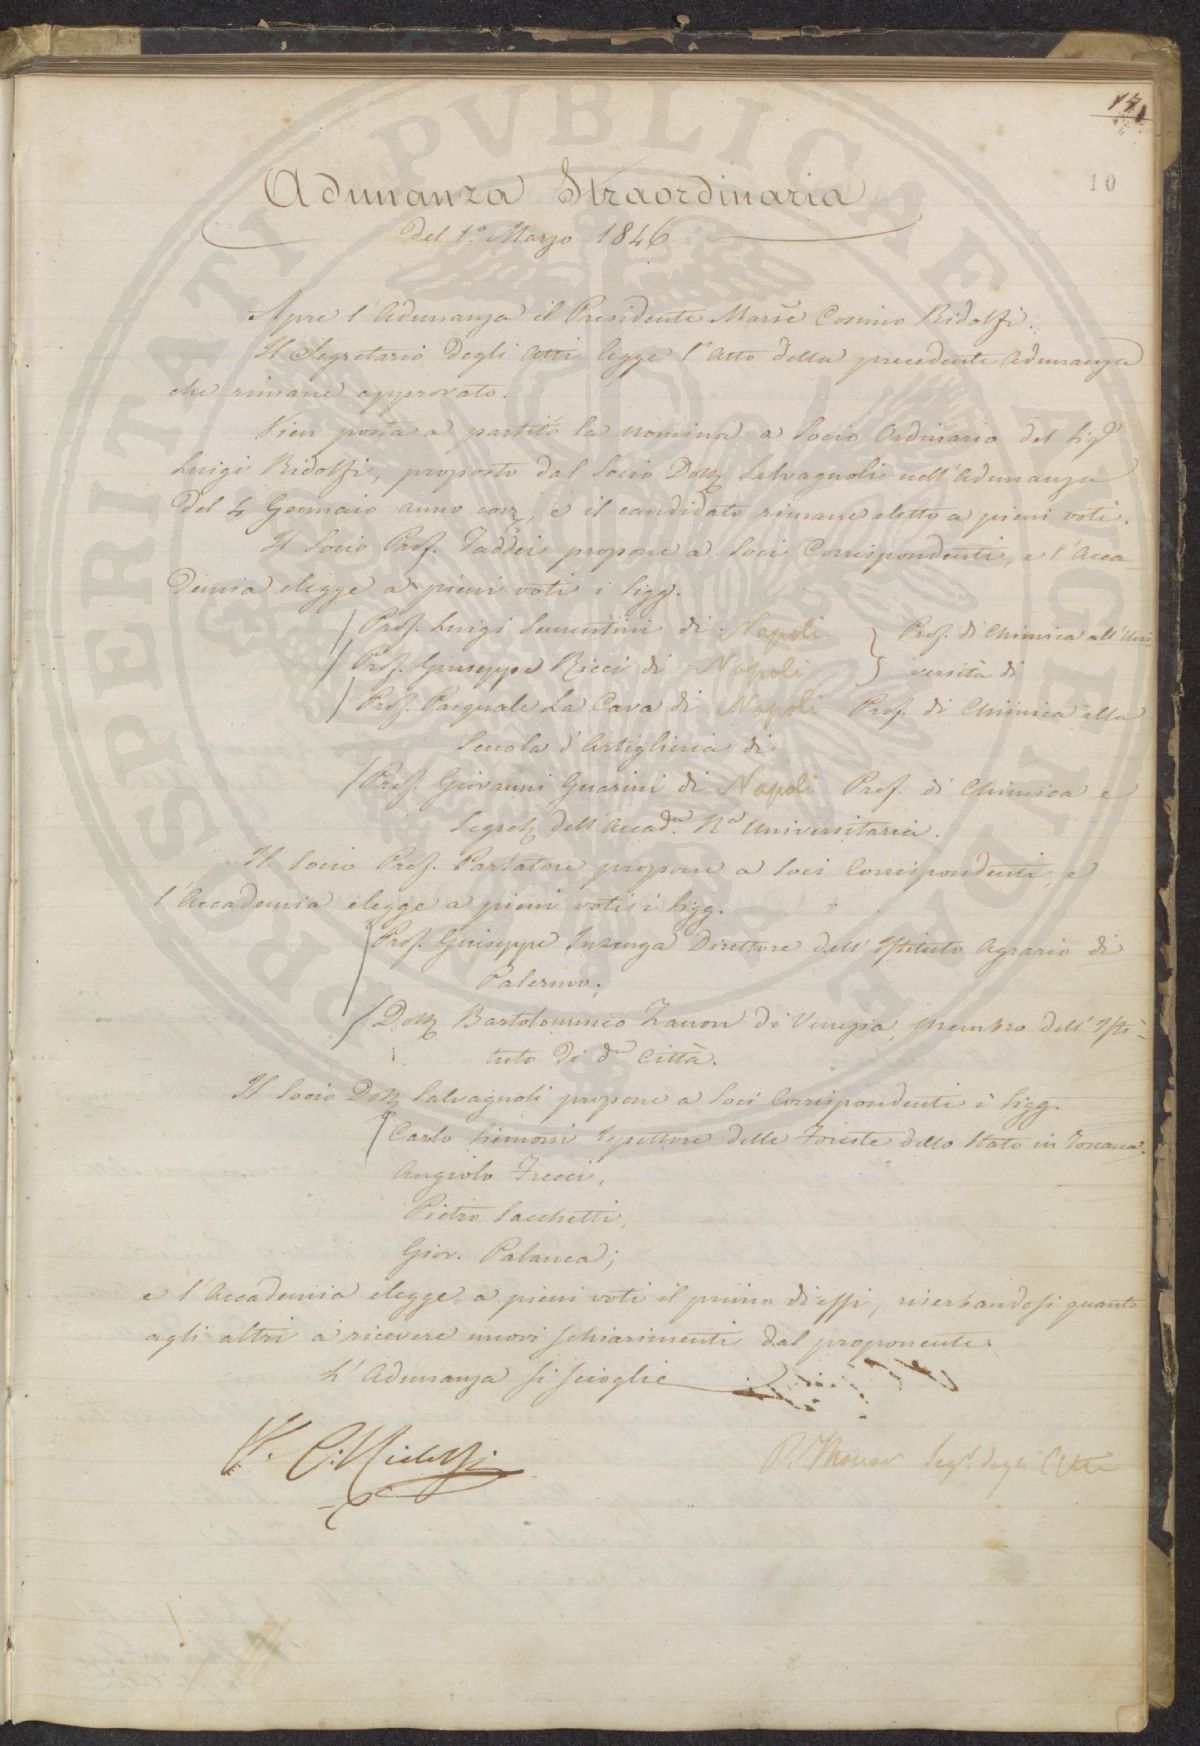 17
10
Adunanza Straordinaria
del 1.º Marzo 1846
Apre l'Adunanza il Presidente March.e Cosimo Ridolfi.
Il Segretario degli Atti legge l'Atto della precedente Adunanza
che rimane approvato.
Vien posta a partito la nomina a Socio Ordinario del Sig.r
Luigi Ridolfi, proposto dal Socio Dott. Salvagnoli nell'Adunanza
del 4 Gennaio anno corr., e il candidato rimane eletto a pieni voti.
Il Socio Prof. Taddei propone a Soci Corrispondenti, e l'Acca-
demia elegge a pieni voti i Sigg.
Prof. Luigi Sementini di Napoli } Prof. di Chimica all'Uni
Prof. Giuseppe Ricci di Napoli } versità di
Prof. Pasquale La Cava di Napoli Prof. di Chimica alla
Scuola d'Artiglieria di
Prof. Giovanni Guarini di Napoli Prof. di Chimica e
Segret. dell'Accad.a R.a Universitaria.
Il Socio Prof. Parlatore propone a Soci Corrispondenti, e
l'Accademia elegge a pieni voti i Sigg.
Prof. Giuseppe Inzenga Direttore dell'Istituto Agrario di
Palermo;
Dott. Bartolommeo Zanon di Venezia, Membro dell'Isti-
tuto di d.a Città.
Il Socio Dott. Salvagnoli propone a Soci Corrispondenti i Sigg.
Carlo Siemoni Ispettore delle Foreste dello Stato in Toscana.
Angiolo Frecci,
Pietro Sacchetti,
Giov. Palanca;
e l'Accademia elegge a pieni voti il primo di essi, riserbandosi quanto
agli altri a ricevere nuovi schiarimenti dal proponente.
L'Adunanza si scioglie
V. C. Ridolfi
P. Thouar Seg.o degli Atti
PROSPERITATI PVBLICAE AVGENDAE